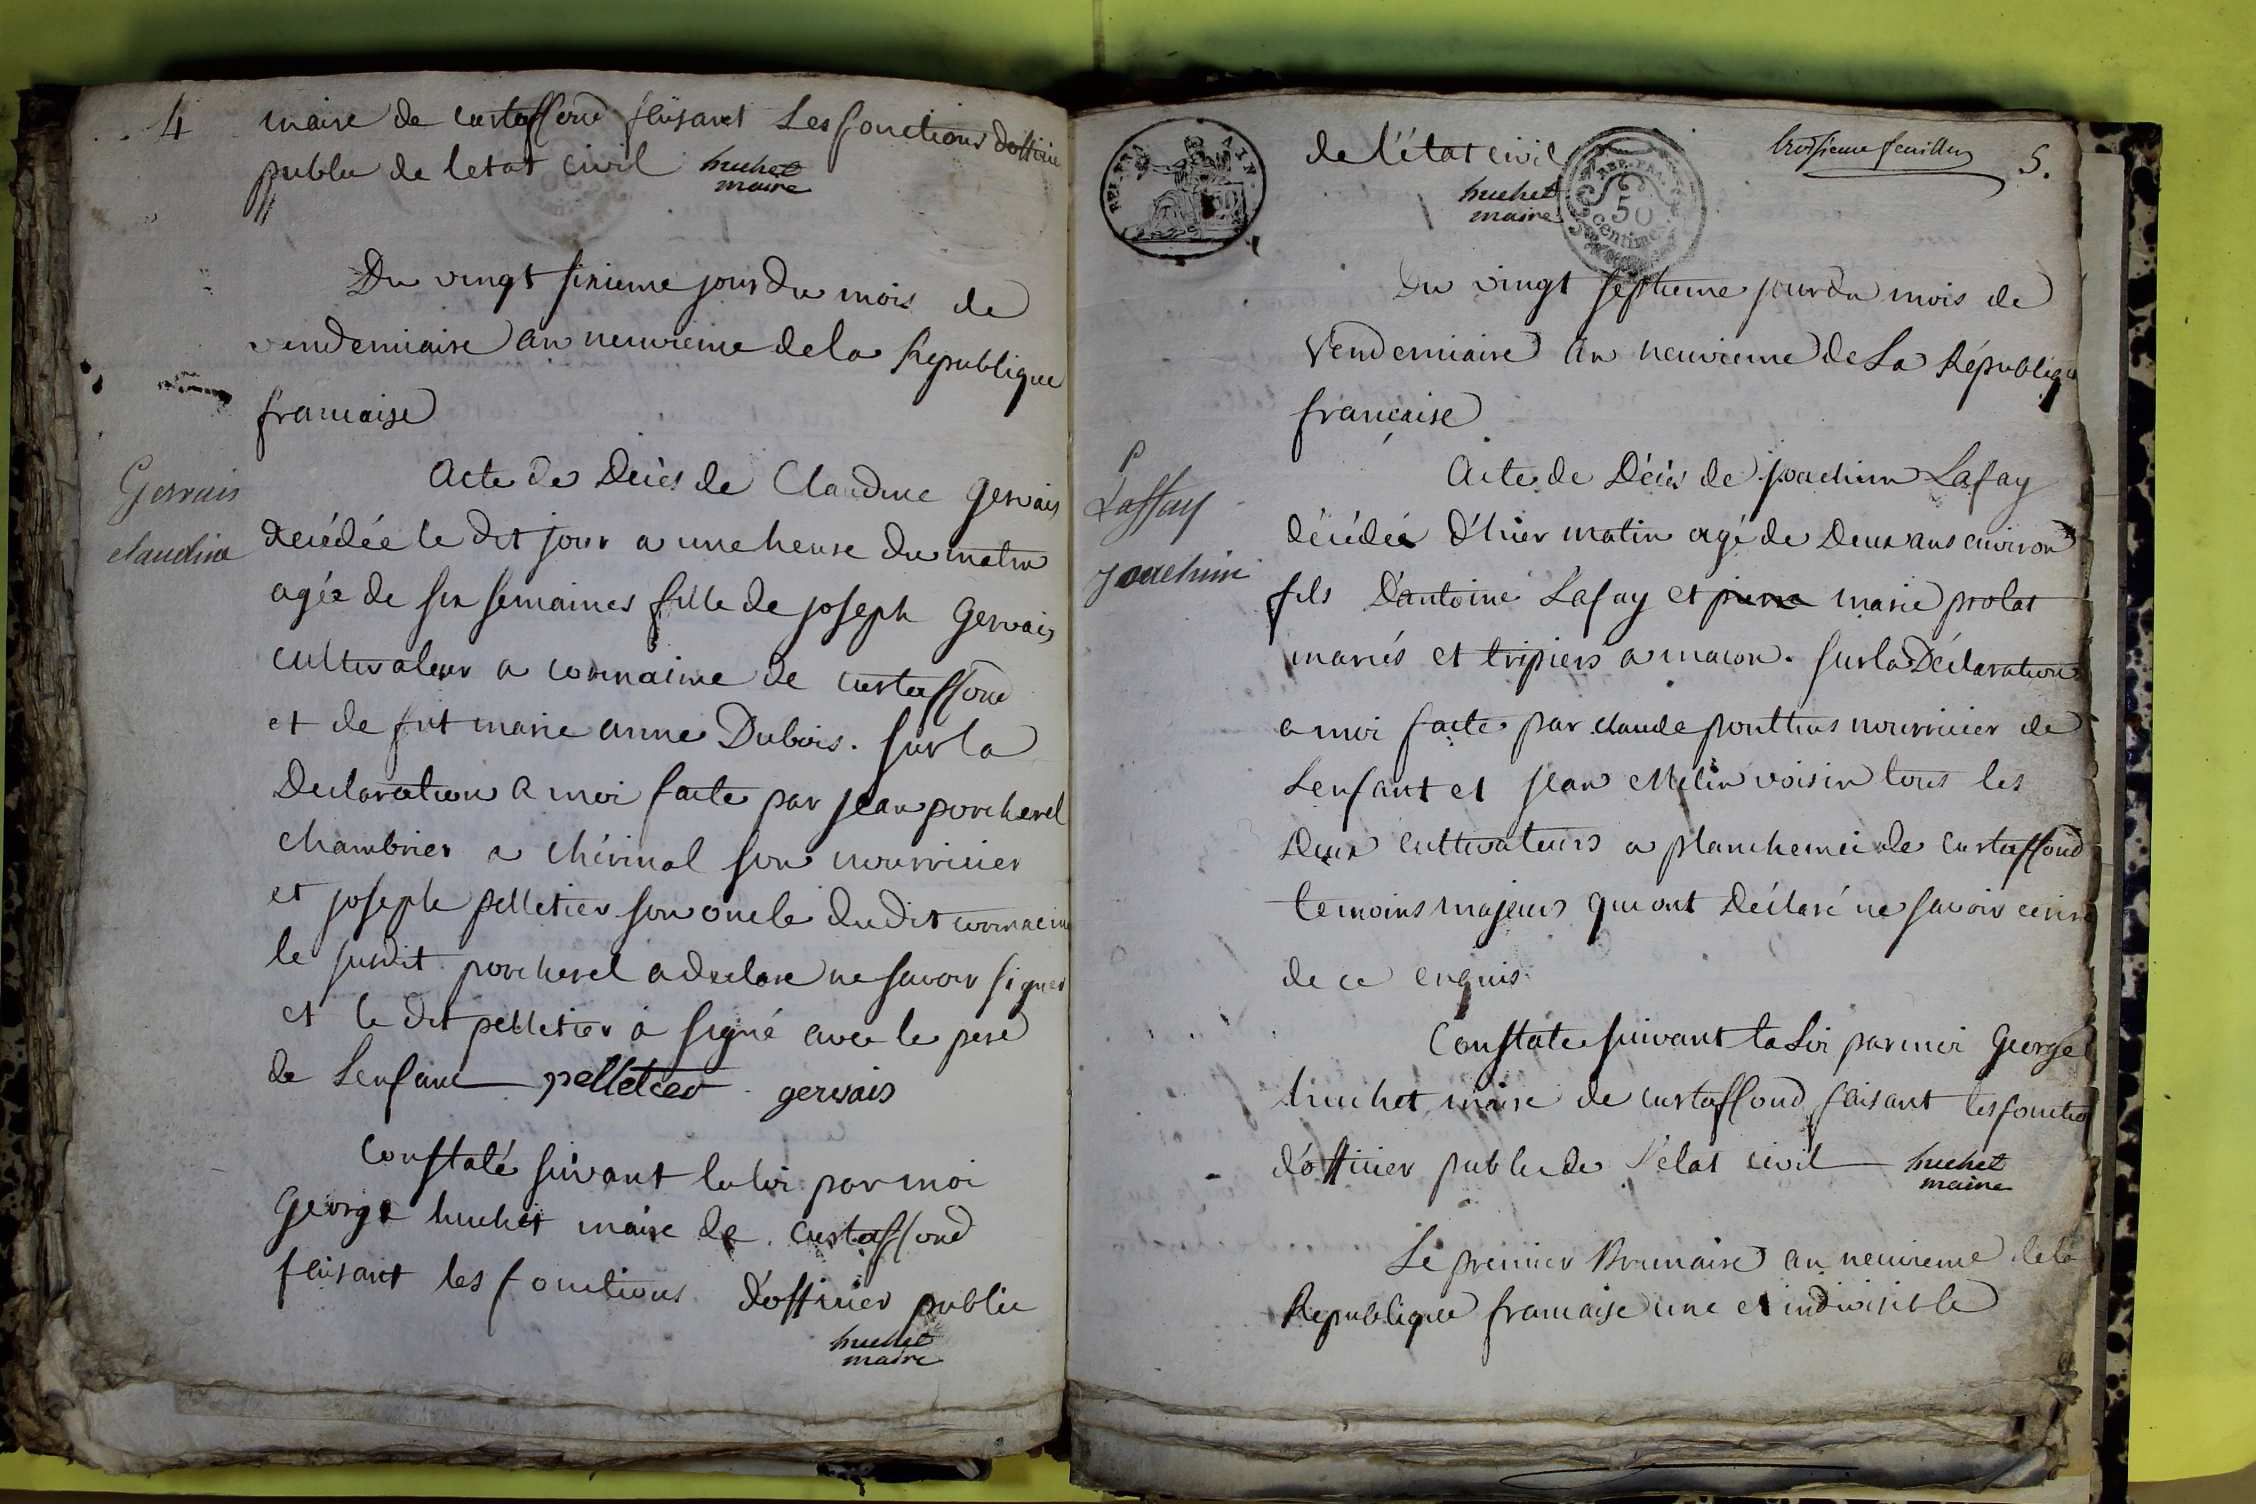 4
maire de curtaffond faisant Les fonctions dofficier
public de letat civil huchet
maire
Du vingt sixieme jour du mois de
vendemiaire an neuvieme de la Republique
francaise
Gervais
claudine
Acte de Deces de Claudine Gervais
decédée le dit jour a une heure du matin
agée de six semaines fille de joseph Gervais
cultivateur a cormaime de curtaffond
et de fut marie anne Dubois. sur la
Declaration a moi faite par jean porcherel
chambrier a chérinal son nourricier
et joseph pelletier son oncle dudit
le susdit porcherel a declare ne savoir signer
et le dit pelletier a signé avec le pere
de Lenfant pelletier gervais
Constaté suivant la loi par moi
George huchet maire de curtaffond
faisant les fonctions d'officier public
huchet
maire
REP. FRA. AIN.
de l'état civil
huchet
maire
REP. FRA.
50
Centimes
troisieme feuillet
5.
Du vingt septieme jour du mois de
Vendemiaire an neuvieme de La République
française
p
Laffay
Joachim
Acte de Décés de joachim Lafay
décédée d'hier matin agé de Deux ans environ
fils D'antoine Lafay et marie prolat
mariés et tripiers a macon. sur la Déclaration
a moi faite par claude ponthus nourricier de
Lenfant et jean Melin voisin tous les
Deux cultivateurs a planchemei de curtaffond
temoins majeurs qui ont Déclaré ne savoir ecrire
de ce enquis
Constate suivant la Loi par moi George
huchet maire de curtaffond faisant les fonctio
d'officier public de l'état civil huchet
maire
Le premier Brumaire an neuvieme de la
Republique francaise une et indivisible